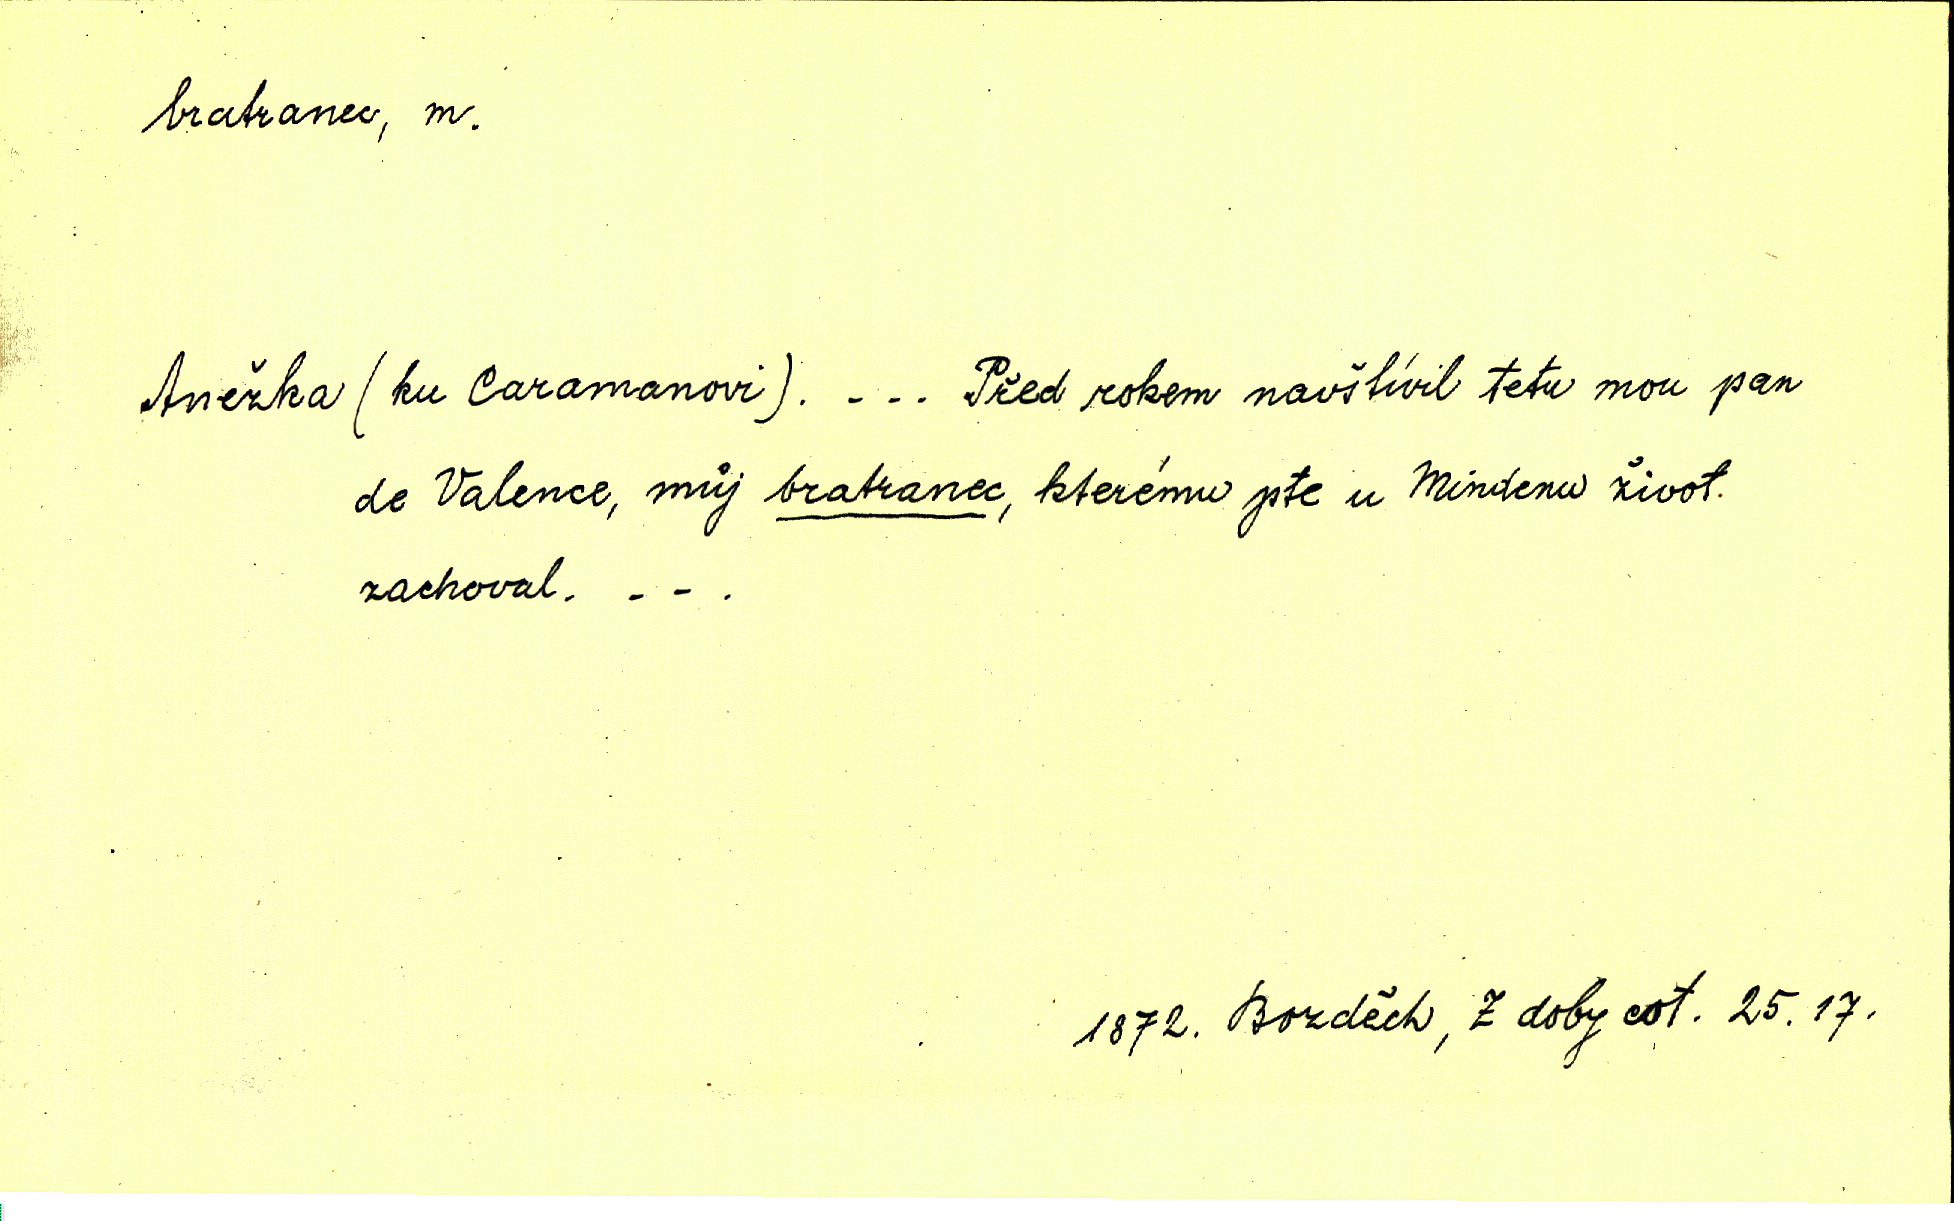 bratranec, m.
Anežka (ku Caramanovi). - - . Před rokem navštívil tetu mou pan
de Valence, můj bratranec, kterému jste u Mindenu život
zachoval. - - .
1872. Bozděch, Z doby cot. 25. 17.